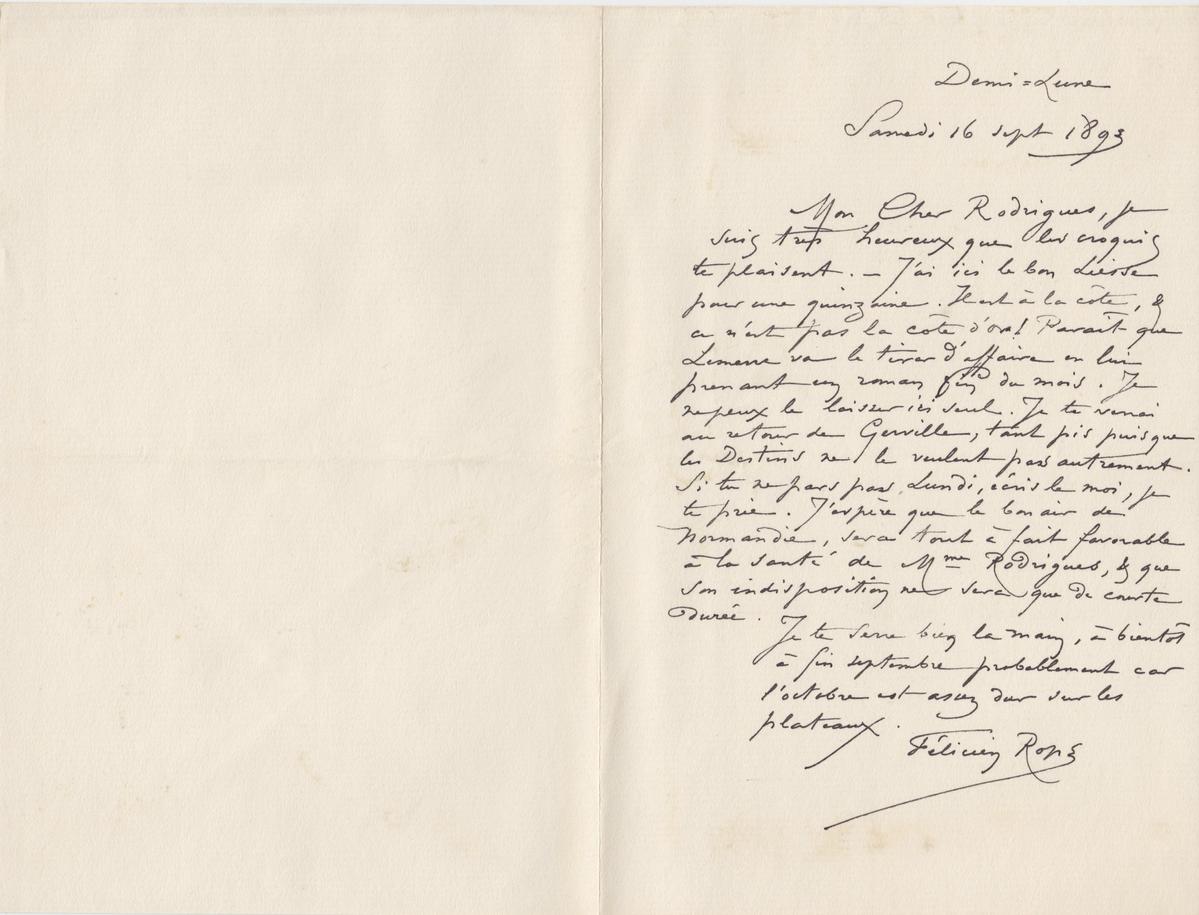 Demi=Lune
Samedi 16 sept 1893
Mon Cher Rodrigues, je
suis très heureux que les croquis
te plaisent. – J'ai ici le bon Liesse
pour une quinzaine. Il est à la côte, &
ça n'est pas la côte d'or! Parait que
Lemerre va le tirer d'affaire en lui
prenant un roman fin du mois. Je
ne peux le laisser ici seul. Je te verrai
au retour de Gerville, tant pis puisque
les Destins ne le veulent pas autrement.
Si tu ne pars pas Lundi, écris le moi, je
te prie. J'espère que le bon air de
Normandie, sera tout à fait favorable
à la santé de Mme Rodrigues, & que
son indisposition ne sera que de courte
durée.
Je te serre bien la main, à bientôt
à fin septembre probablement car
l'octobre est assez dur sur les
plateaux.
Félicien Rops